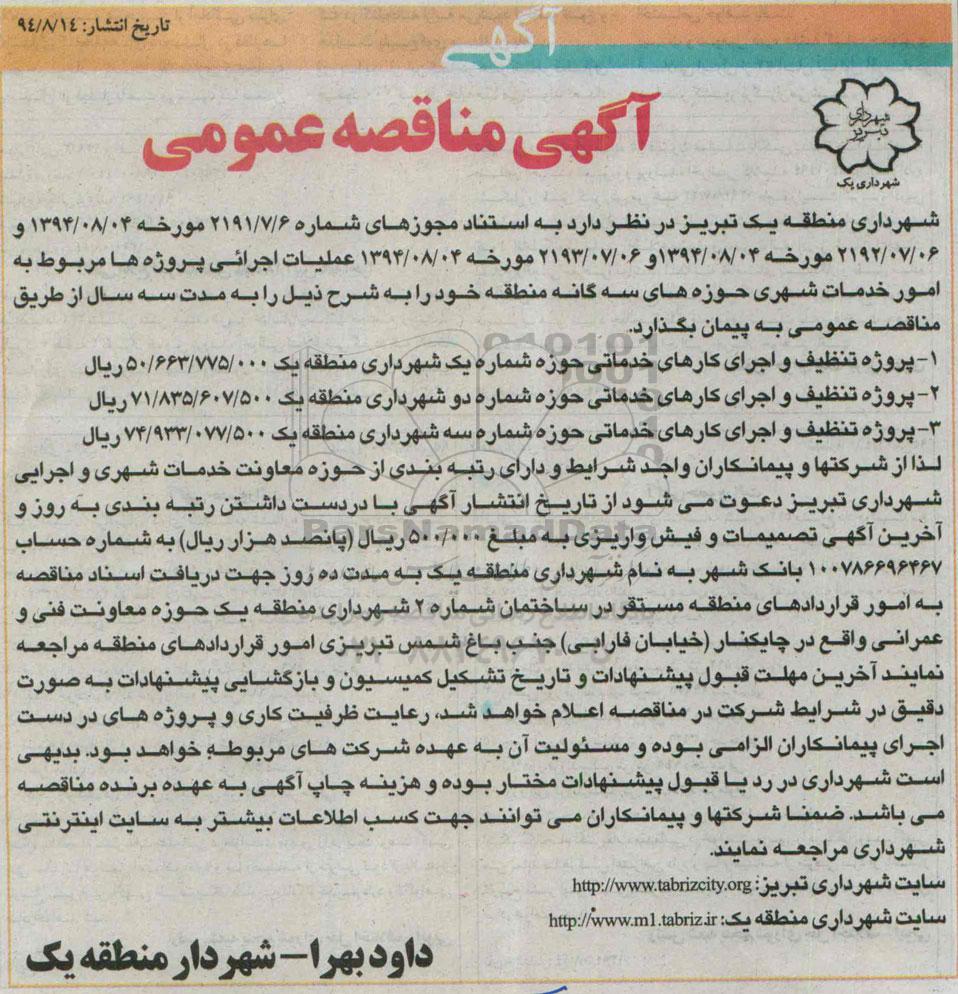 آگهی
تاریخ انتشار: ۹۴/۸/۱۴
شهرداری تبریز
شهرداری یک
آگهی مناقصه عمومی
شهرداری منطقه یک تبریز در نظر دارد به استناد مجوزهای شماره ۲۱۹۱/۷/۶ مورخه ۱۳۹۴/۰۸/۰۴ و
۲۱۹۲/۰۷/۰۶ مورخه ۱۳۹۴/۰۸/۰۴و ۲۱۹۳/۰۷/۰۶ مورخه ۱۳۹۴/۰۸/۰۴ عملیات اجرائی پروژه ها مربوط به
امور خدمات شهری حوزه های سه گانه منطقه خود را به شرح ذیل را به مدت سه سال از طریق
مناقصه عمومی به پیمان بگذارد.
۱- پروژه تنظیف و اجرای کارهای خدماتی حوزه شماره یک شهرداری منطقه یک ۵۰/۶۶۳/۷۷۵/۰۰۰ ریال
۲- پروژه تنظیف و اجرای کارهای خدماتی حوزه شماره دو شهرداری منطقه یک ۷۱/۸۳۵/۶۰۷/۵۰۰ ریال
۳- پروژه تنظیف و اجرای کارهای خدماتی حوزه شماره سه شهرداری منطقه یک ۷۴/۹۳۳/۰۷۷/۵۰۰ ریال
لذا از شرکتها و پیمانکاران واجد شرایط و دارای رتبه بندی از حوزه معاونت خدمات شهری و اجرایی
شهرداری تبریز دعوت می شود از تاریخ انتشار آگهی با دردست داشتن رتبه بندی به روز و
آخرین آگهی تصمیمات و فیش واریزی به مبلغ ۵۰۰/۰۰۰ ریال (پانصد هزار ریال) به شماره حساب
۱۰۰۷۸۶۶۹۶۴۶۷ بانک شهر به نام شهرداری منطقه یک به مدت ده روز جهت دریافت اسناد مناقصه
به امور قراردادهای منطقه مستقر در ساختمان شماره ۲ شهرداری منطقه یک حوزه معاونت فنی و
عمرانی واقع در چایکنار (خیابان فارابی) جنب باغ شمس تبریزی امور قراردادهای منطقه مراجعه
نمایند آخرین مهلت قبول پیشنهادات و تاریخ تشکیل کمیسیون و بازگشایی پیشنهادات به صورت
دقیق در شرایط شرکت در مناقصه اعلام خواهد شد، رعایت ظرفیت کاری و پروژه های در دست
اجرای پیمانکاران الزامی بوده و مسئولیت آن به عهده شرکت های مربوطه خواهد بود. بدیهی
است شهرداری در رد یا قبول پیشنهادات مختار بوده و هزینه چاپ آگهی به عهده برنده مناقصه
می باشد. ضمنا شرکتها و پیمانکاران می توانند جهت کسب اطلاعات بیشتر به سایت اینترنتی
شهرداری مراجعه نمایند.
سایت شهرداری تبریز: http://www.tabrizcity.org
سایت شهرداری منطقه یک: http://www.m1.tabriz.ir
داود بهرا- شهردار منطقه یک
ParsNamadData